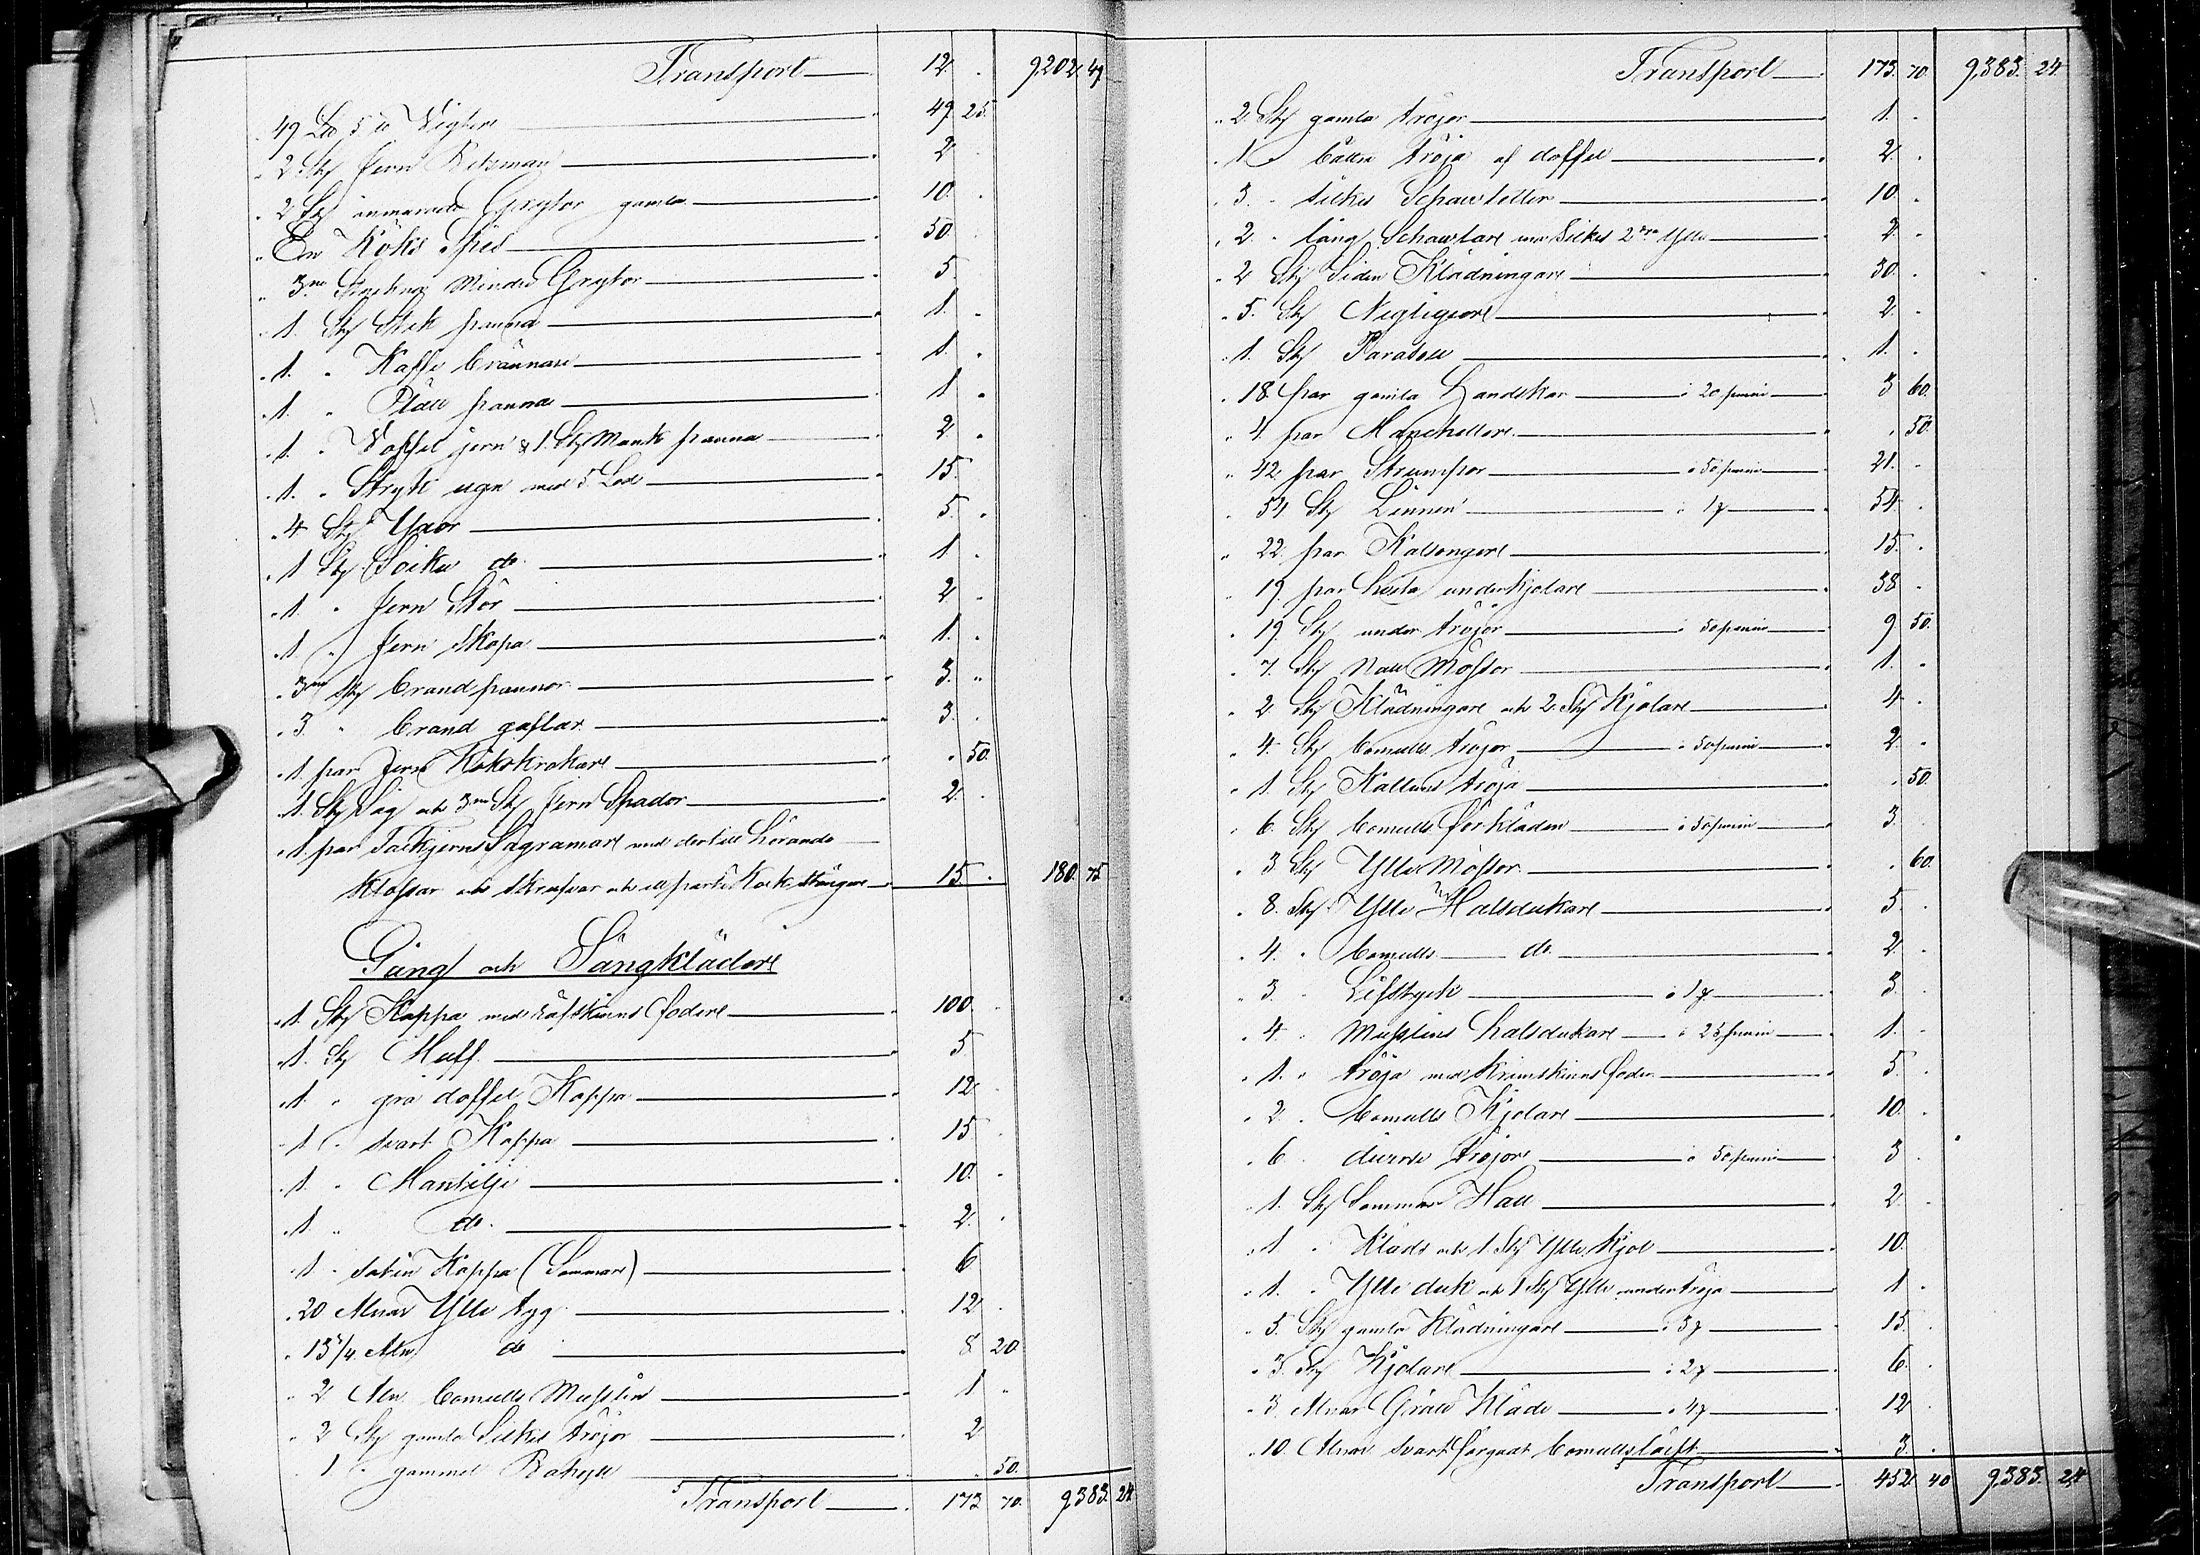 Transport 12. 9202 49
49 Lod 5 Vigter 49 25
2 Stj Jern Betsman 2
2 Stj inmurade Grytor gamla 10.
En Köks Spis 50.
3ne Mindre Grytor 5
1. Stj Stek panna 1.
1. " Kaffe brännare 1.
1. " Plätt panna 1.
1. " Voffel jern & 1 Stj Munk panna 2
1. " Stryk ugn med 5 Lod 15.
4 Stj Yxor 5.
1 Stj do 1.
1. " Jern Stör 2
1. " Jern Skopa 1.
3ne Stj brandpannor 3.
3. " brand gaflar 3.
1. par Jern Kokskrokare . 50.
1. Stj Såg och 3ne Stj Jern Spador 2.
1. par Tackjerns Sågramare med dertill hörande
Klossar och skrufvar och ett parti stänger 15. 180. 75
Gång och Sängkläder
1. Stj Kappa med räfskinns foder 100.
1. Stj Muff 5
1. " grå doffel Kappa 12
1. " svart Kappa 15
1. " Mantilje 10.
1. " do. 2.
1. " Satin Kappa (Sommar) 6
20 Alnar Ylle tyg 12
13 3/4 Aln do 8 20
2 Aln bomulls Musslin 1
2 Stj gamla Silkes tröjor 2
1. " gammal 50.
Transport 173 70. 9383 24
Transport 173. 70. 9,383. 24.
2 Stj gamla tröjor 1.
1. " bättre tröja af doffel 2.
3. " silkes Schawletter 10.
2. " lång Schawlare en Silkes 2 Ylle 2.
2 Stj Siden Klädningare 30.
5. Stj Negligeore 2.
1. Stj Parasoll 1.
18. par gamla Handskar à 20 penni 3 60.
4. par Manchettere . 50.
42 par Strumpor à 50 penni 21.
54 Stj Linnen à 1 54.
22 par Kalsongere 15.
19 par hvita underkjolare 38
19. Stj under tröjor à 50 penni 9 50.
7. Stj Natt Mössor 1.
2 Stj Klädningare och 2 Stj Kjolare 4.
4. Stj bomulls tröjor à 50 penni 2.
1. Stj Kattuns tröja . 50.
6. Stj bomulls förkläden à 50 penni 3.
3 Stj Ylle Mössor . 60.
8. Stj Ylle Halsdukare 5.
4. " bomulls do. 2.
3. " Lifstyck à 1 3.
4. " Musslins halsdukare à 25 penni 1.
1. " tröja med Krimskinns foder 5.
2. " bomulls Kjolare 10.
6. " diverse tröjore à 50 penni 3
1. Stj Sommar Hatt 2
1. " Kläde och 1 Stj Ylle Kjol 10.
1. " Ylle duk och 1 Stj Ylle undertröja 1
5. Stj gamla Klädningare à 3 15.
3. Stj Kjolare à 2 6.
3. Alnar Grått Kläde à 4 12
10. Alnar svart färgadt bomullslärft 3.
Transport 452 40 9,383. 24